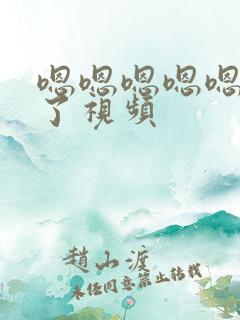 嗯嗯嗯嗯嗯
了視頻
趙山渡
未任同意禁止转载